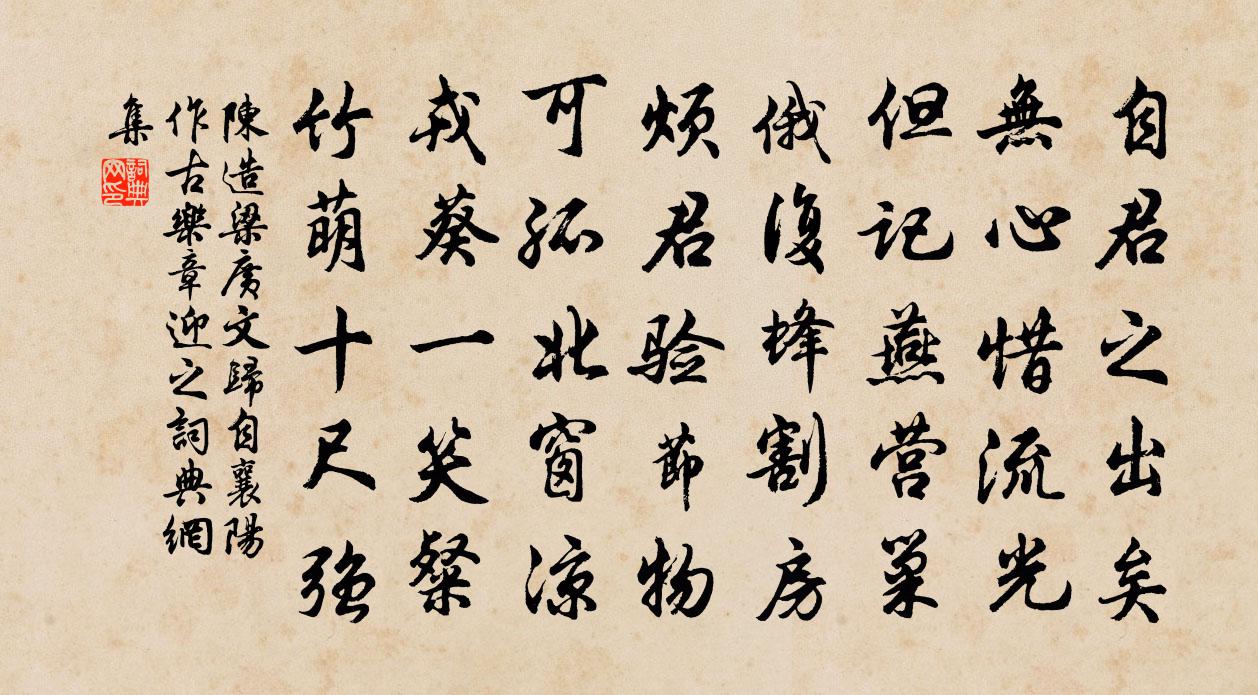 自君之出矣
無心惜流光
但记燕营巢
俄復蜂割房
烦君验節物
可孤北窗凉
戎葵一笑粲
竹萌十尺强
陳造梁广文歸自襄陽
作古樂章迎之詞典網
集
詞典
网印